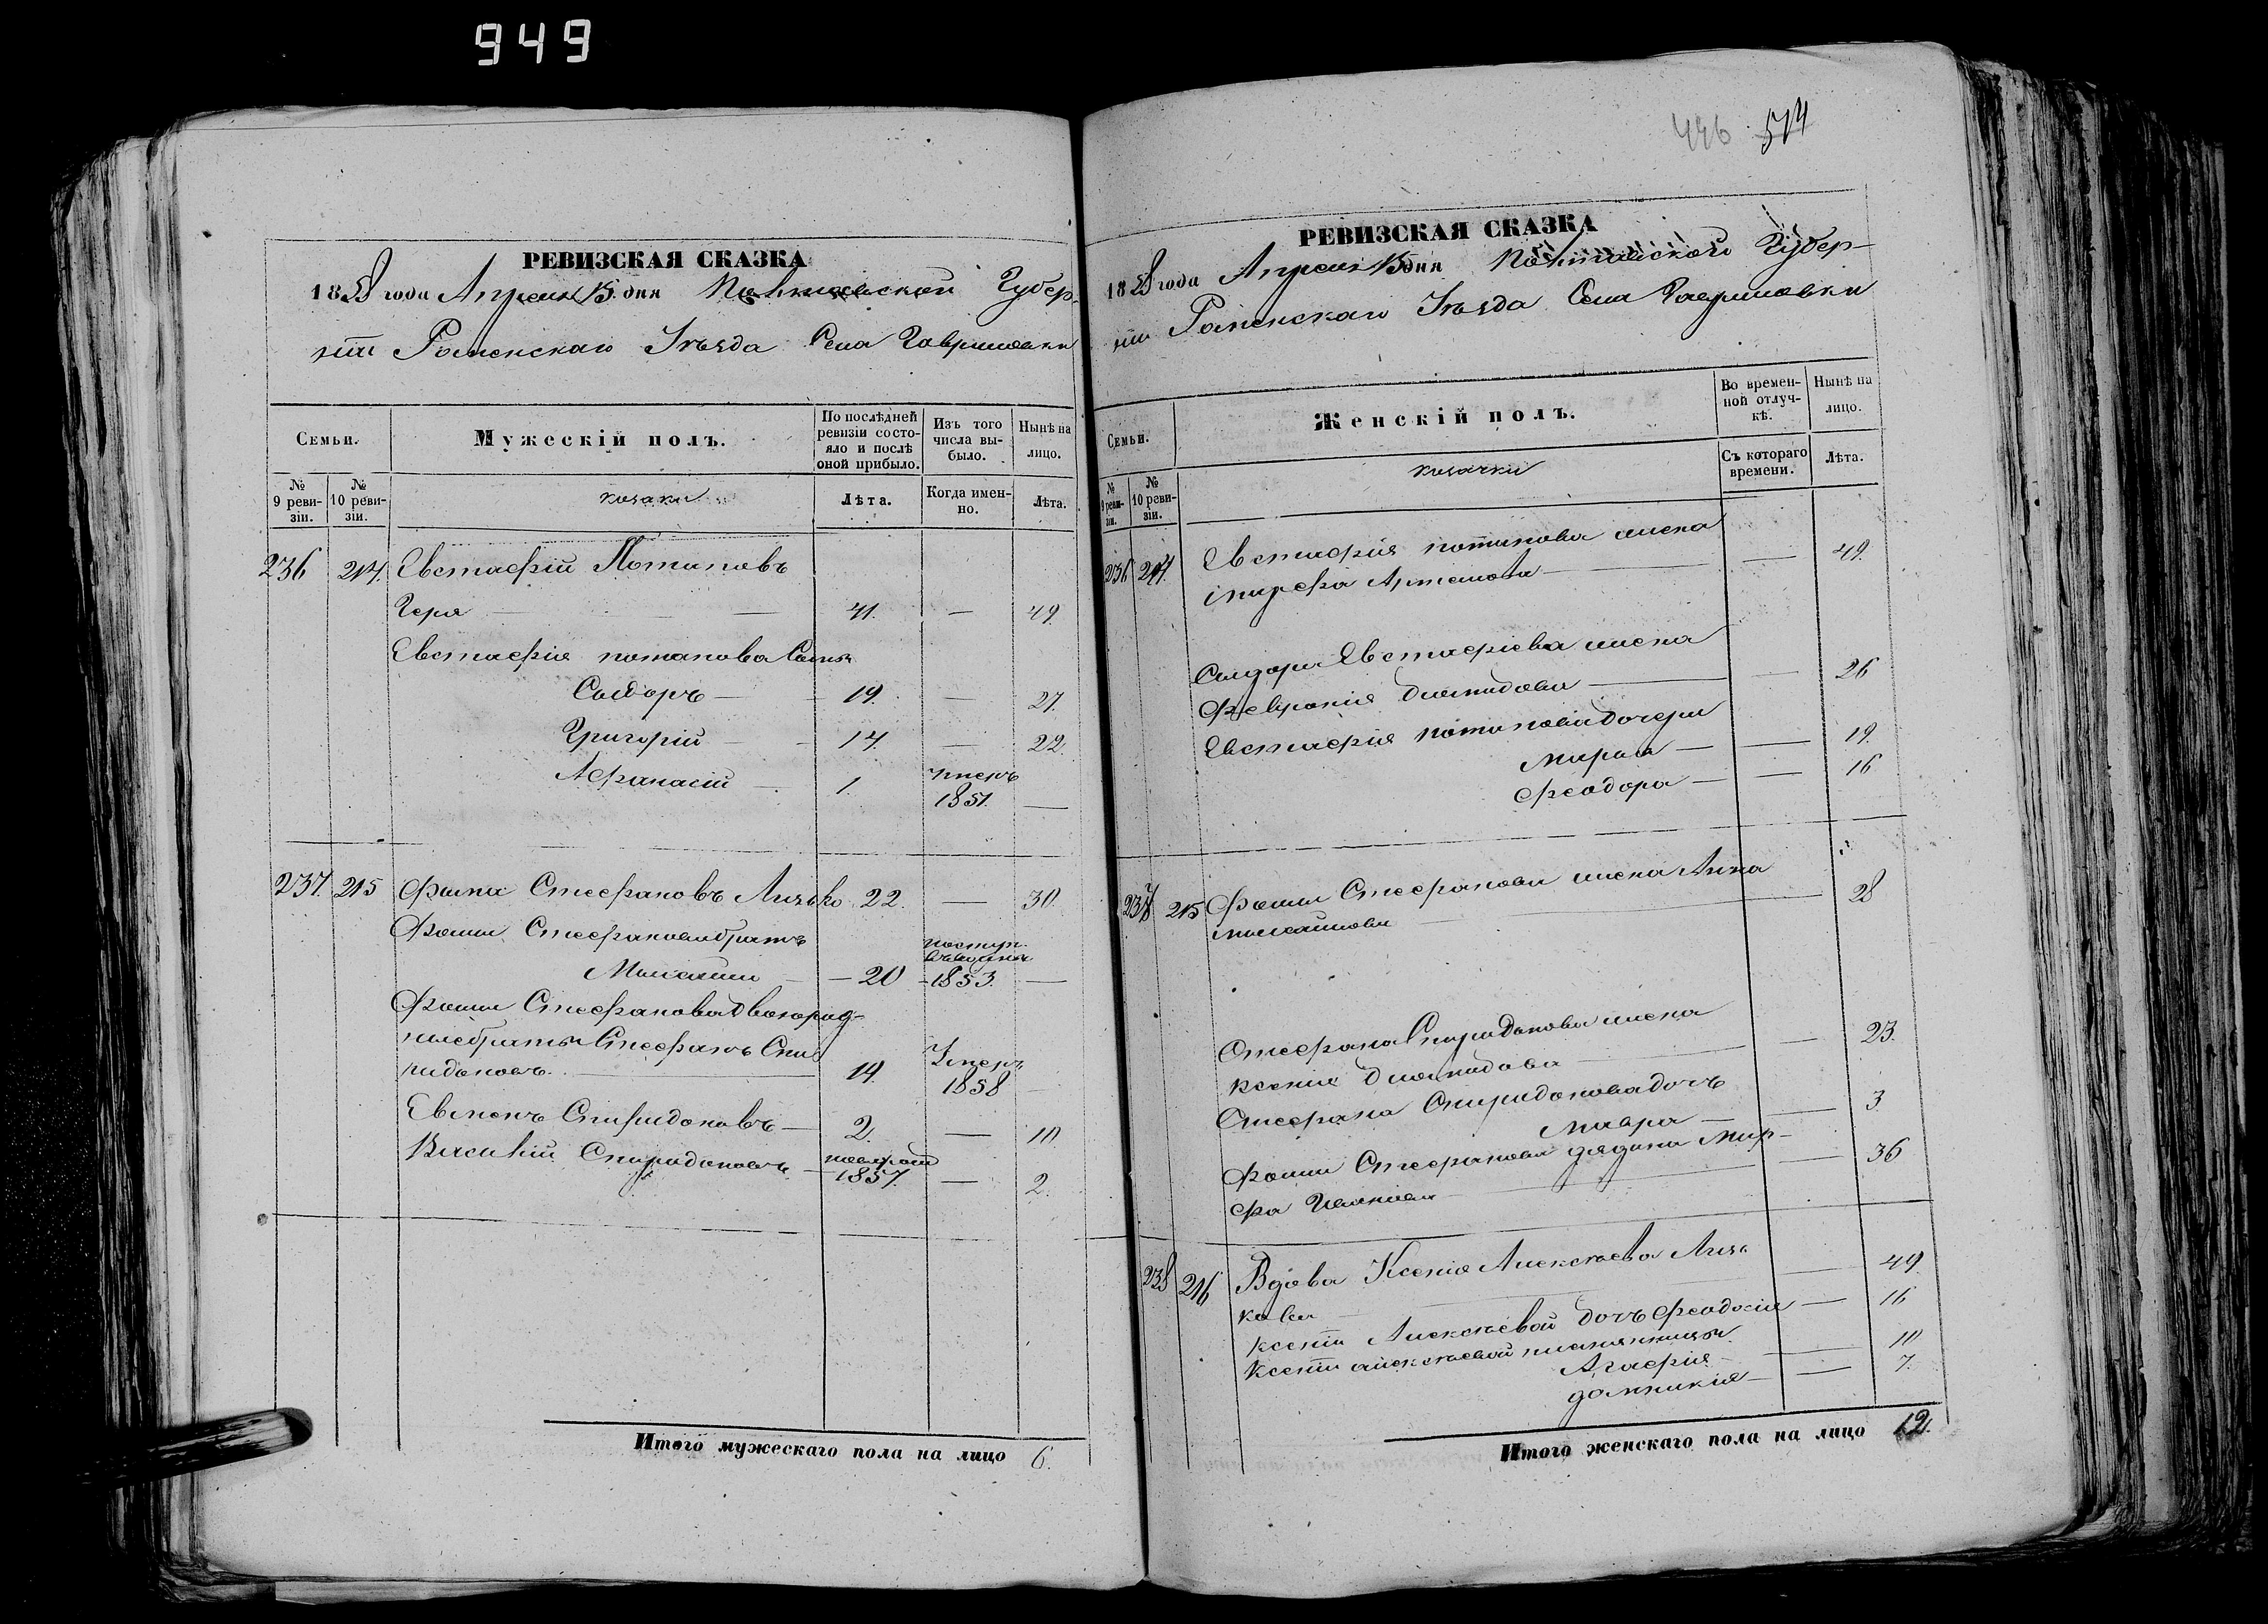 949
РЕВИЗСКАЯ СКАЗКА
1858 года Апреля 15 дня Полтавской Губер-
ніи Роменскаго Уѣзда Села Гавришовки
Семьи.
Мужескій полъ.
По послѣдней ревизіи состояло и послѣ оной прибыло.
Изъ того числа выбыло.
Нынѣ на лицо.
№ 9 ревизіи.
№ 10 ревизіи.
козаки
Лѣта.
Когда именно.
Лѣта.
236 214 Евстафій Потаповъ
Геря — 41. — 49.
Евстафія потапова Сыны
Сидоръ — 19. — 27.
Григорій — 14. — 22.
Афанасій — 1. умеръ 1851. —
237. 215 Фома Стефановъ Лизько 22. — 30.
Фомы Стефанова братъ
— 20 поступ. 1853. —
Фомы Стефанова двоюрод-
ные братья Стефанъ Спи
ридоновъ. — 14. Умеръ 1858
Евменъ Спиридоновъ — 2. — 10
Василий Спиридоновъ — 1857. — 2.
Итого мужескаго пола на лицо 6.
446 514
РЕВИЗСКАЯ СКАЗКА
1858 года Апреля 15 дня Полтавской Губер-
ніи Роменскаго Уѣзда Села Гавришовки
Семьи.
Женскій полъ.
Во временной отлучкѣ.
Нынѣ на лицо.
№ 9 ревизіи.
№ 10 ревизіи.
козачки
Съ котораго времени.
Лѣта.
236 214. Евстафія потапова жена
Артемова — — 49.
Сидора Евстафіева жена
Февронія — — 26
Евстафія потапова дочери
Марья — — 19.
Феодора — — 16
237 215 Фомы Стефанова жена Анна
— 28
Стефана Спиридонова жена
Ксенія — — 23.
Стефана Спиридонова дочь
Мавра — — 3
Фомы Стефанова дядина Мар-
фа — — 36
238 216 Вдова Ксенія Алексѣева Лизь
кова — — 49.
Ксеніи Алексѣевой дочь Феодосія — 16
Ксеніи алексѣевой племянницы
Агафія — — 10
домникія — — 7.
Итого женскаго пола на лицо 12.